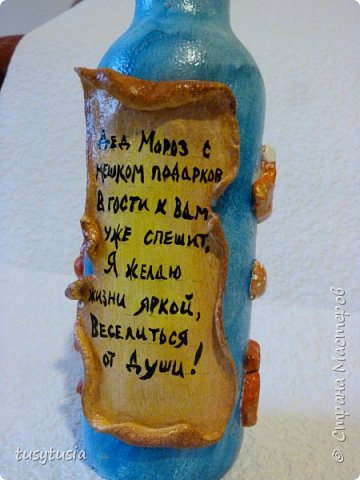 Дед Мороз с
мешком подарков
в гости к Вам
уже спешит,
Я желаю
жизни яркой,
Веселиться
от Души!
tusytusia
© Страна Мастеров